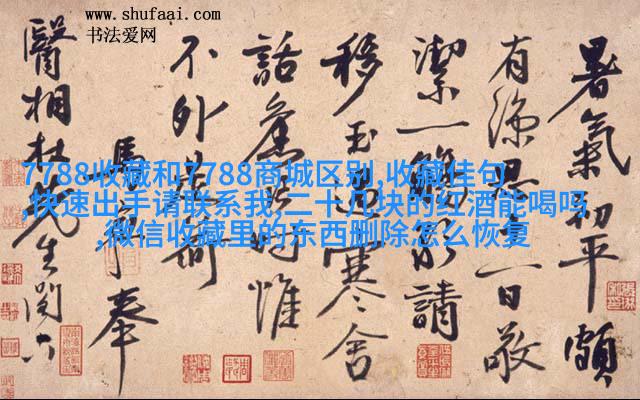 www.shufaai.com
书法爱网
7788收藏和7788商城区别,收藏佳句
,快速出手请联系我,二十几块的红酒能喝吗
,微信收藏里的东西删除怎么恢复
暑氣初平頗
有涼思一日敬
潔一觴請
移玉過寒舍
話舊惟
不外是荷
奉
醫相杜先生閣下